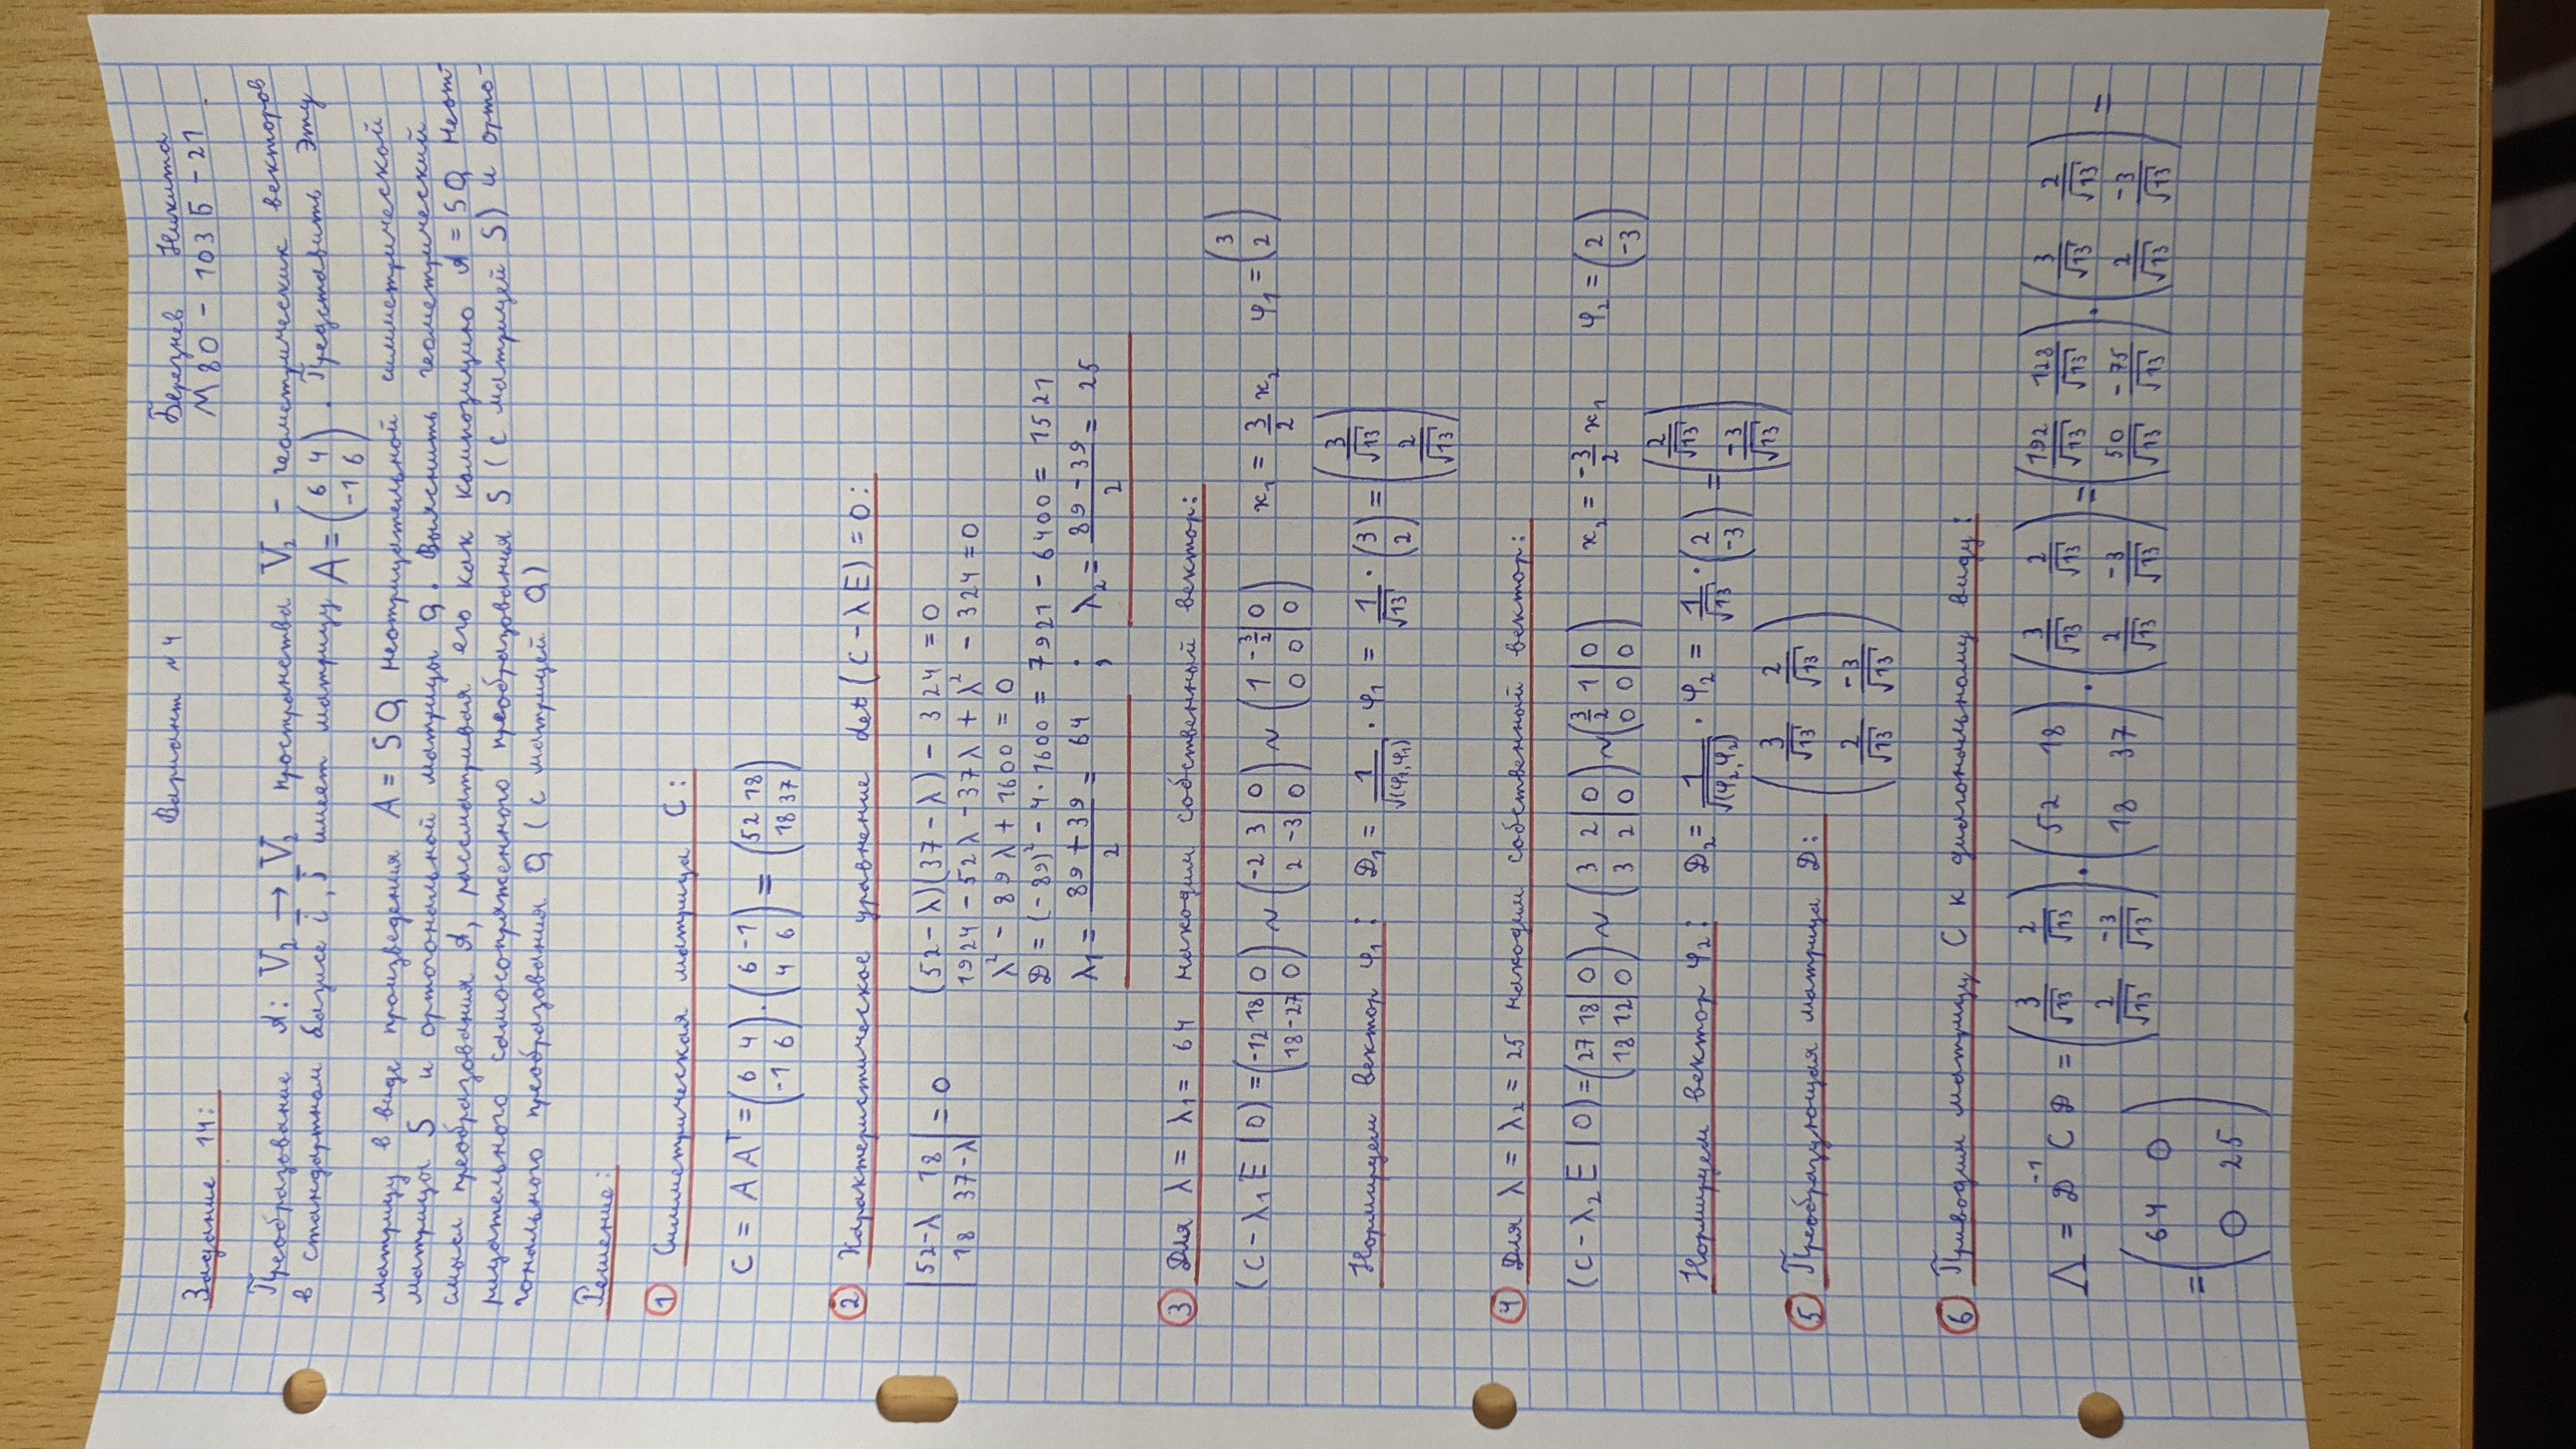 Вариант №4
Березнев Никита
Задание 14:
М80 - 103Б - 21
Преобразование A: V₂ → V₂ пространства V₂ - геометрических векторов
в стандартном базисе i, j имеет матрицу A = (6 4; -1 6). Представить эту
матрицу в виде произведения A = SQ неотрицательной симметрической
матрицы S и ортогональной матрицы Q. Выяснить геометрический
смысл преобразования A, рассматривая его как композицию A = SQ неот-
рицательного самосопряженного преобразования S (с матрицей S) и орто-
гонального преобразования Q (с матрицей Q)
Решение:
① Симметрическая матрица C:
C = A Aᵀ = (6 4; -1 6) · (6 -1; 4 6) = (52 18; 18 37)
② Характеристическое уравнение det(C - λE) = 0:
|52-λ 18; 18 37-λ| = 0
(52 - λ)(37 - λ) - 324 = 0
1924 - 52λ - 37λ + λ² - 324 = 0
λ² - 89λ + 1600 = 0
D = (-89)² - 4·1600 = 7921 - 6400 = 1521
λ₁ = (89 + 39)/2 = 64 ; λ₂ = (89 - 39)/2 = 25
③ Для λ = λ₁ = 64 находим собственный вектор:
(C - λ₁E | 0) = (-12 18 | 0; 18 -27 | 0) ~ (-2 3 | 0; 2 -3 | 0) ~ (1 -3/2 | 0; 0 0 | 0) x₁ = 3/2 x₂ φ₁ = (3; 2)
Нормируем вектор φ₁: D₁ = 1/√(φ₁,φ₁) · φ₁ = 1/√13 · (3; 2) = (3/√13; 2/√13)
④ Для λ = λ₂ = 25 находим собственный вектор:
(C - λ₂E | 0) = (27 18 | 0; 18 12 | 0) ~ (3 2 | 0; 3 2 | 0) ~ (3/2 1 | 0; 0 0 | 0) x₂ = -3/2 x₁ φ₂ = (2; -3)
Нормируем вектор φ₂: D₂ = 1/√(φ₂,φ₂) · φ₂ = 1/√13 · (2; -3) = (2/√13; -3/√13)
⑤ Преобразующая матрица D: (3/√13 2/√13; 2/√13 -3/√13)
⑥ Приводим матрицу C к диагональному виду:
Λ = D⁻¹ C D = (3/√13 2/√13; 2/√13 -3/√13) · (52 18; 18 37) · (3/√13 2/√13; 2/√13 -3/√13) = (192/√13 128/√13; 50/√13 -75/√13) · (3/√13 2/√13; 2/√13 -3/√13) =
= (64 0; 0 25)